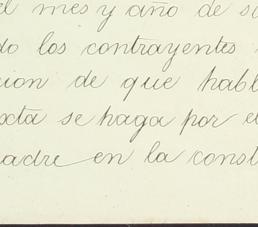 el mes y año de su
do los contrayentes
cion de que habl
xta se haga por el
adre en la const